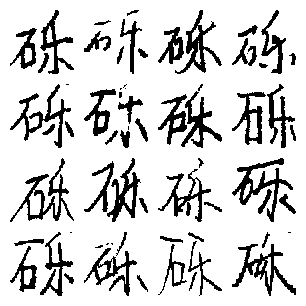 砾砾砾砾
砾砾砾砾
砾砾砾砾
砾砾砾砾